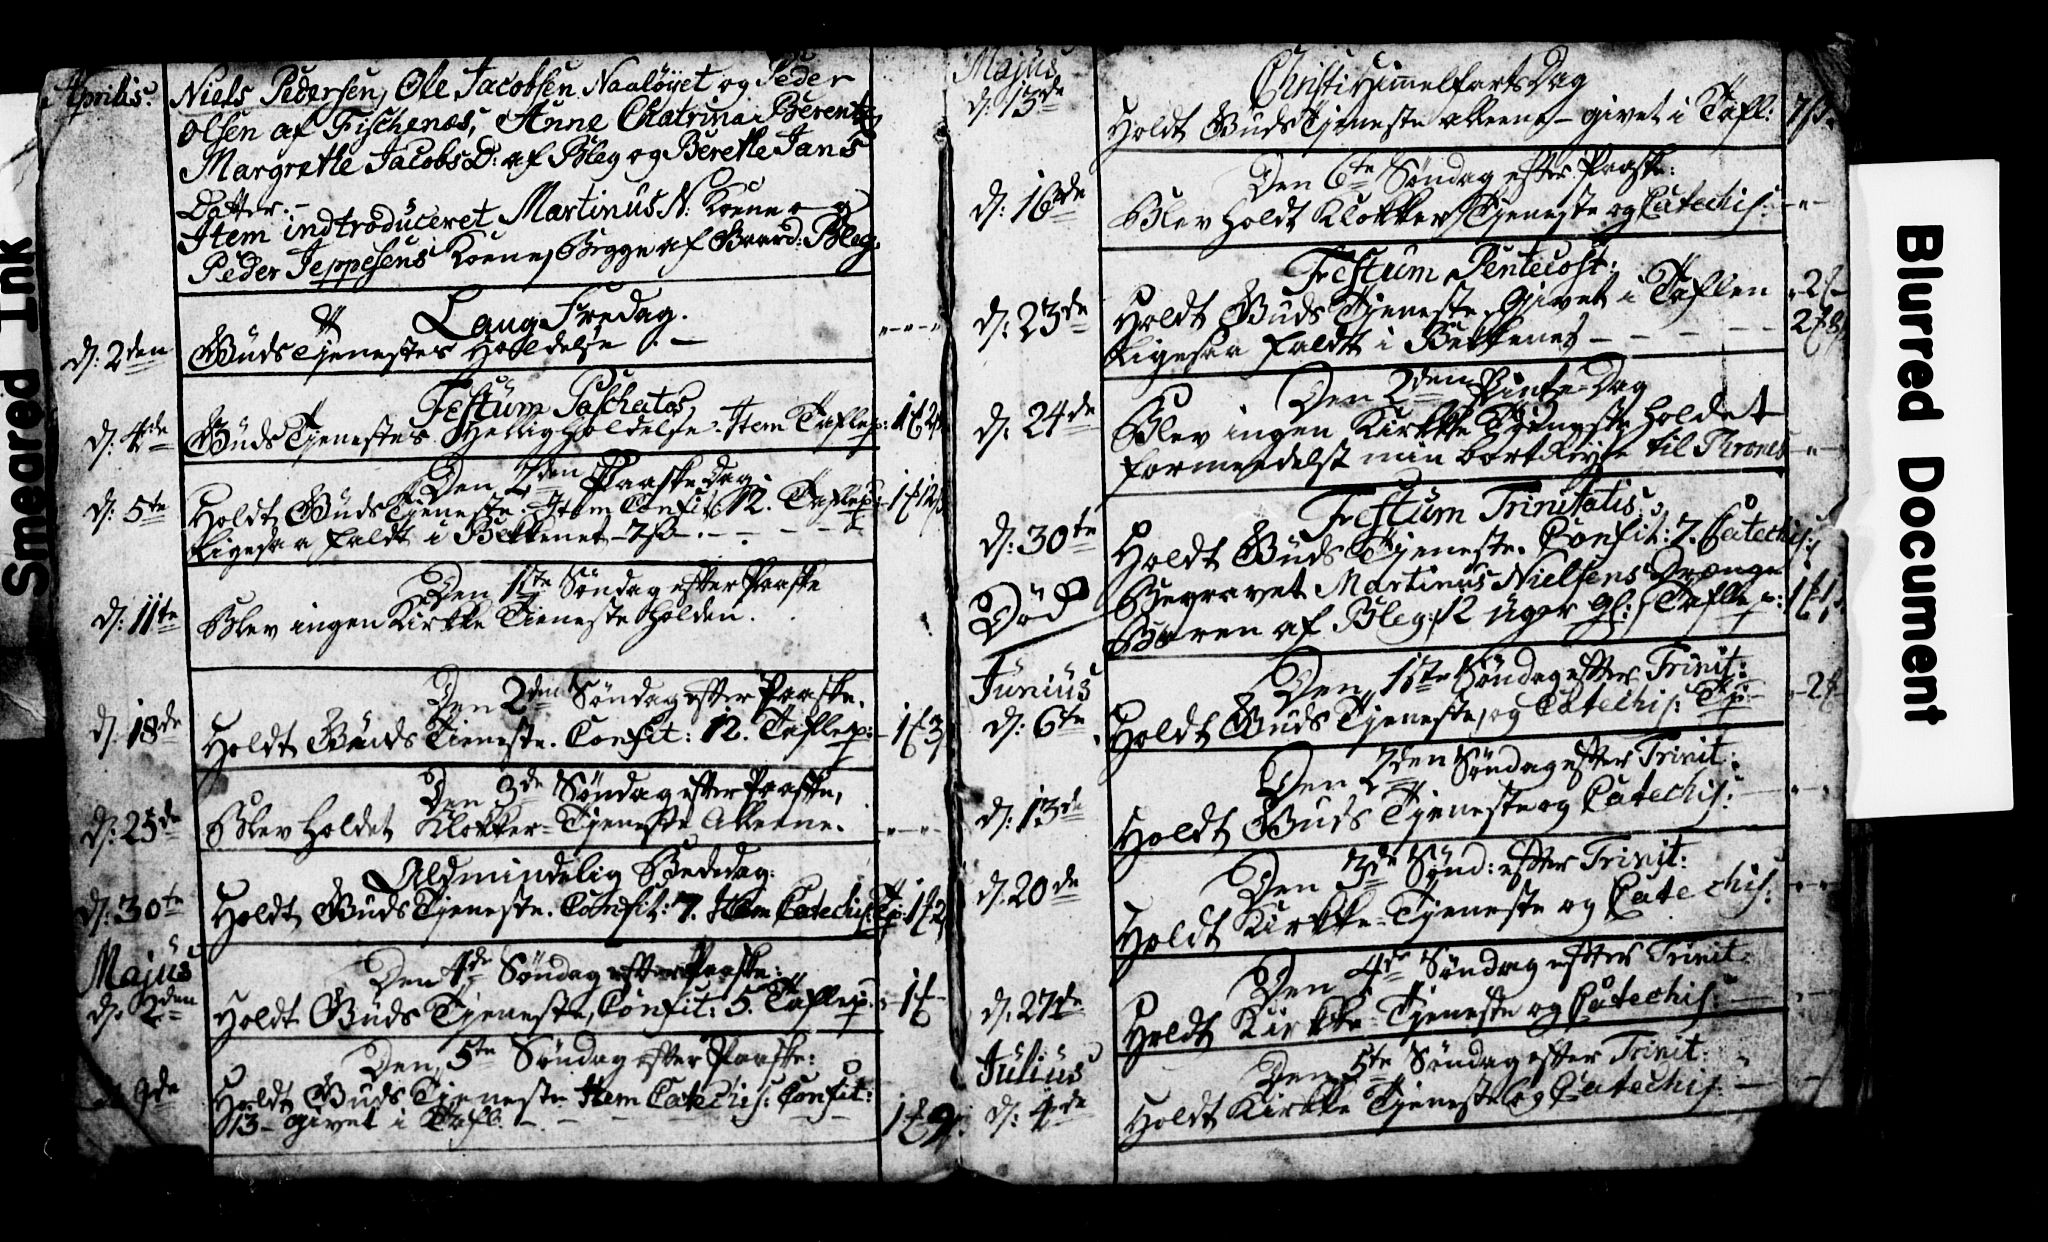 Aprilis.
Niels Pedersen, Ole Jacobsen Naaløyet og Peder
Olsen af Fischenæs, Anne Chatrina Berentz
Margrethe Jacobs D: af Bleg og Berethe Jans
Datter. -
Item indtroduceret Martinus N: Koene og
Peder Jeppesens Koene, Begge af Gaard: Bleg.
Lang Fredag.
d: 2den
Guds Tjenestes Holdelse . -
Festum Paschatos
d: 4de
Guds Tjenestes Helligholdelse. Item Taflep:
Den 2den Paaske Dag
d: 5te
Holdt Guds Tjeneste. Item Confit: 12. Taflep:
Ligesaa faldt i Bekkenet
Den 1ste Søndag efter Paaske
d: 11te
Blev ingen Kirkke Tieneste Holden.
Den 2den Søndag efter Paaske.
d: 18de
Holdt Guds Tieneste. Confit: 12. Taflep:
Den 3de Søndag efter Paaske,
d: 25de
Blev Holdet Klokker-Tjeneste Alleene.
Aldmindelig Bededag:
d: 30te
Holdt Guds Tjeneste. Confit: 7. Item Catechis:
Majus
Den 4de Søndag efter Paaske:
d. 2den
Holdt Guds Tjeneste, Confit: 5. Taflep:
Den 5te Søndag efter Paaske:
9de
Holdt Guds Tjeneste Item Catechis: Confit:
13 - givet i Tafl.
Majus
Christi Himmelfarts Dag
d: 13de
Holdt Guds Tjeneste alleene - givet i Tafl:
Den 6te Søndag efter Paaske:
d: 16de
Blev Holdt Klokker Tjeneste og Catechis:
Festum Pentecost:
d: 23de
Holdt Guds Tjeneste, Givet i Taflen
Ligesaa faldt i Bekkenet
Den 2den Pintse-Dag
d: 24de
Blev ingen Kirkke Tjeneste Holdet
formedelst min bort Reyse til Thrones
Festum Trinitatis.
d: 30te
Holdt Guds Tjeneste. Confit: 7. Catechis:
Død
Begravet Martinus Nielsens Drænge
Baren af Bleg: 12 uger gl: Taflep:
Junius
Den 1ste Søndag efter Trinit:
d: 6te
Holdt Guds Tjeneste, og Catechis: Tj:
Den 2den Søndag efter Trinit:
d: 13de
Holdt Guds Tjeneste og Catechis:
Den 3de Sønd: efter Trinit:
d. 20de
Holdt Kirkke-Tjeneste og Catechis:
Den 4de Søndag efter Trinit:
d: 27de
Holdt Kirkke-Tjeneste og Catechis:
Julius
Den 5te Søndag efter Trinit:
d: 4de
Holdt Kirkke Tjeneste og Catechis:
Smeared Ink
Blurred Document